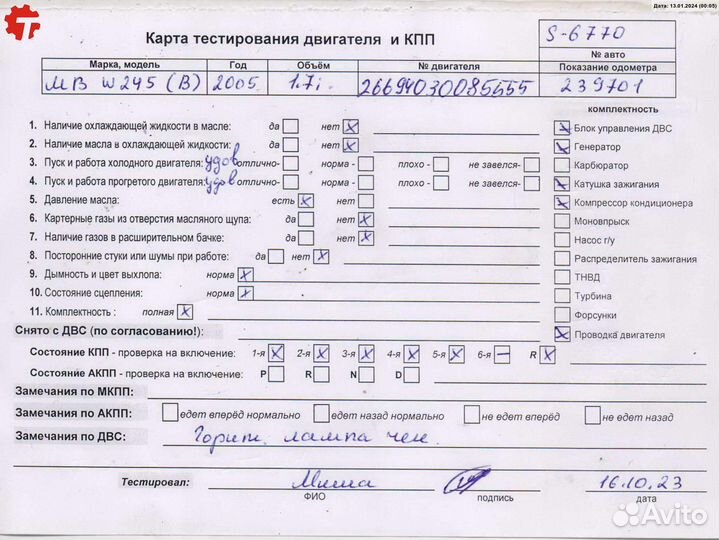 Дата: 13.01.2024 (00:05)
Карта тестирования двигателя и КПП
S-6770
№ авто
Марка, модель Год Объём № двигателя Показание одометра
MB W245 (B) 2005 1.7i 26694030085555 239701
комплектность
1. Наличие охлаждающей жидкости в масле: да нет X
Блок управления ДВС
2. Наличие масла в охлаждающей жидкости: да нет X
Генератор
3. Пуск и работа холодного двигателя: удов отлично- норма - плохо - не завелся-
Карбюратор
4. Пуск и работа прогретого двигателя: удов отлично- норма - плохо - не завелся-
Катушка зажигания
5. Давление масла: есть X нет
Компрессор кондиционера
6. Картерные газы из отверстия масляного щупа: да нет X
Моновпрыск
7. Наличие газов в расширительном бачке: да нет X
Насос г/у
8. Посторонние стуки или шумы при работе: да нет X
Распределитель зажигания
9. Дымность и цвет выхлопа: норма X
ТНВД
10. Состояние сцепления: норма X
Турбина
11. Комплектность : полная X
Форсунки
Снято с ДВС (по согласованию!):
Проводка двигателя
Состояние КПП - проверка на включение: 1-я X 2-я X 3-я X 4-я X 5-я X 6-я — R X
Состояние АКПП - проверка на включение: P R N D
Замечания по МКПП:
Замечания по АКПП: едет вперёд нормально едет назад нормально не едет вперёд не едет назад
Замечания по ДВС: Горит лампа чек.
Тестировал: Миша 16.10.23
ФИО подпись дата
Avito